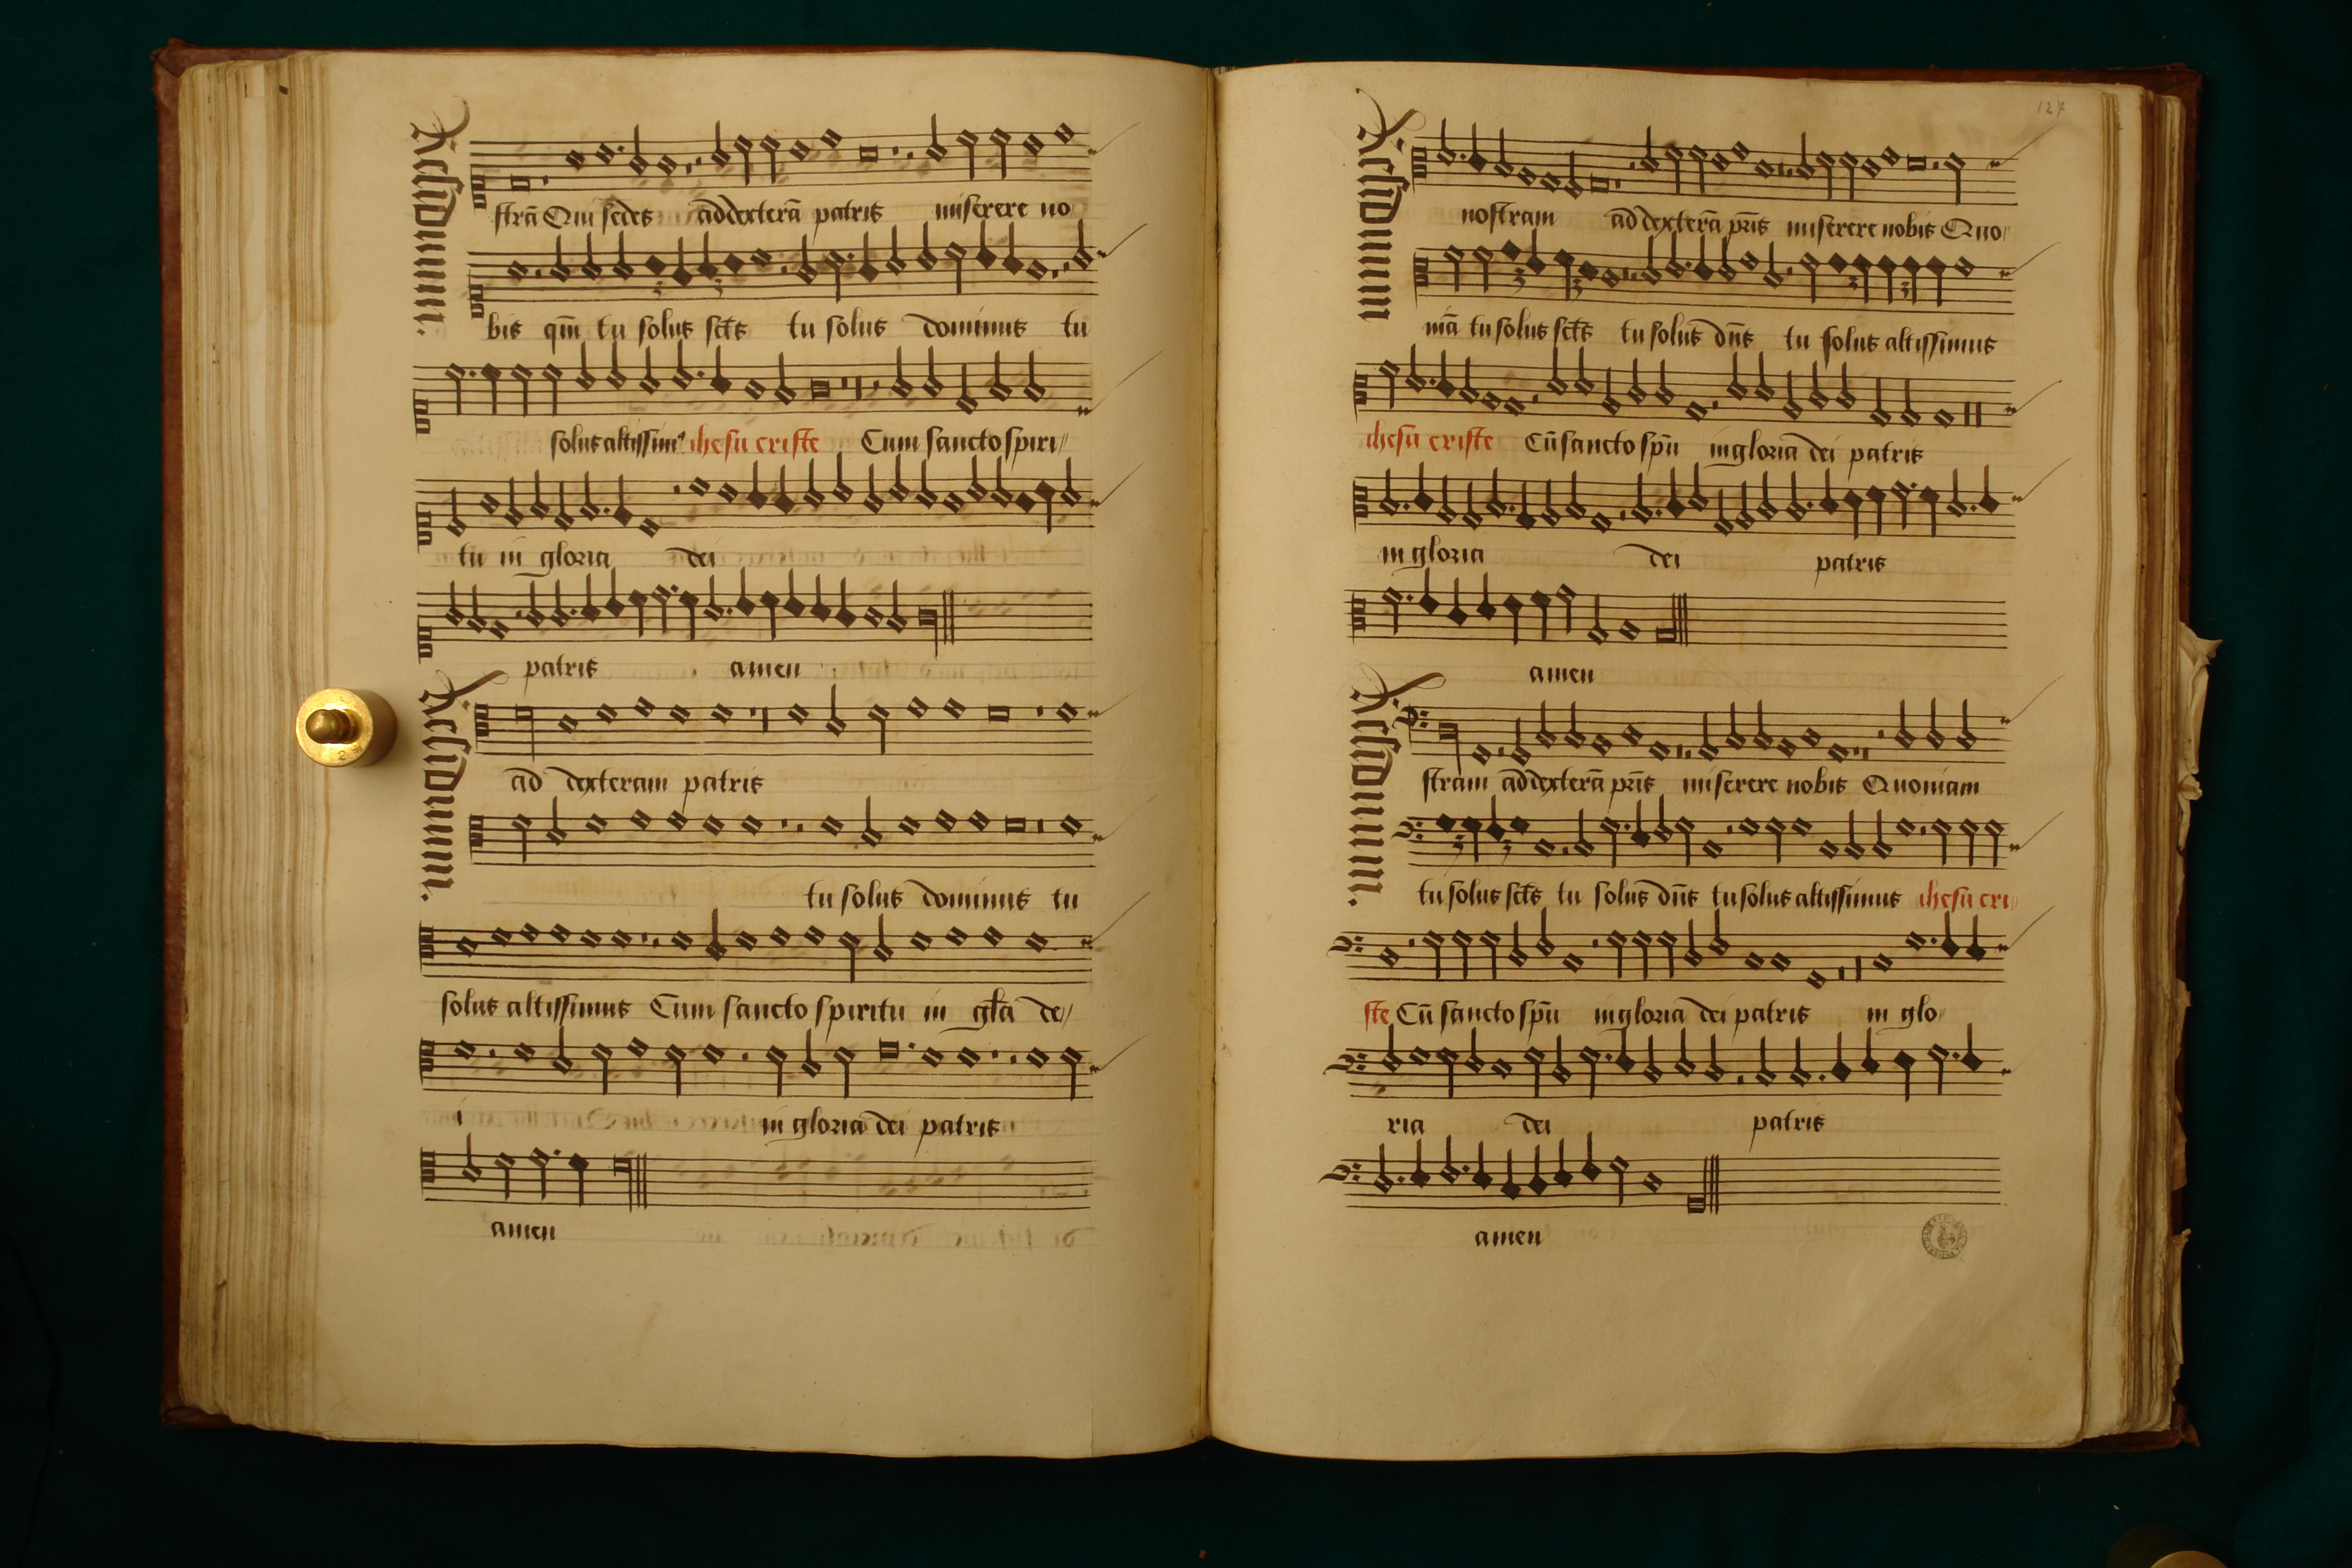 Residuum.
strā Qui sedes ad dexterā patris miserere no
bis qm̄ tu solus sct̄s tu solus dominus tu
solus altissim⁹ ihesu criste Cum sancto spiri//
tu in gloria dei
patris amen
Residuum.
ad dexteram patris
tu solus dominus tu
solus altissimus Cum sancto spiritu in gl̄a de//
i in gloria dei patris
amen
127
Residuum
nostram ad dexterā pr̄is miserere nobis Quo//
niā tu solus sct̄s tu solus dn̄s tu solus altissimus
ihesu criste Cū sancto spū in gloria dei patris
in gloria dei patris
amen
Residuum.
stram ad dexterā pr̄is miserere nobis Quoniam
tu solus sct̄s tu solus dn̄s tu solus altissimus ihesu cri//
ste Cū sancto spū in gloria dei patris in glo//
ria dei patris
amen